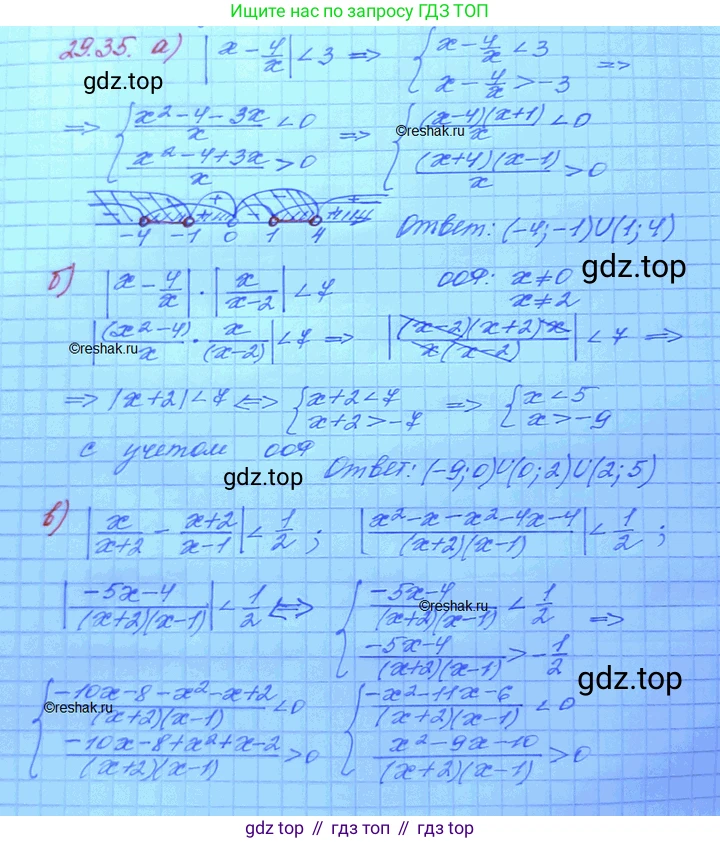 Ищите нас по запросу ГДЗ ТОП
29.35. а) |x - 4/x| < 3 => { x - 4/x < 3 ; x - 4/x > -3 =>
gdz.top
=> { (x² - 4 - 3x)/x < 0 ; (x² - 4 + 3x)/x > 0 => { ((x-4)(x+1))/x < 0 ; ((x+4)(x-1))/x > 0
©reshak.ru
- + - +
-4 -1 0 1 4
Ответ: (-4; -1)∪(1; 4)
gdz.top
б) |x - 4/x| · |x/(x-2)| < 7 ОДЗ: x ≠ 0
x ≠ 2
|(x²-4)/x · x/(x-2)| < 7 => |((x-2)(x+2)x)/(x(x-2))| < 7 =>
©reshak.ru
=> |x+2| < 7 <=> { x+2 < 7 ; x+2 > -7 => { x < 5 ; x > -9
с учетом ОДЗ
gdz.top
Ответ: (-9; 0)∪(0; 2)∪(2; 5)
в) |x/(x+2) - (x+2)/(x-1)| < 1/2 ; |(x² - x - x² - 4x - 4)/((x+2)(x-1))| < 1/2 ;
|(-5x-4)/((x+2)(x-1))| < 1/2 <=> { (-5x-4)/((x+2)(x-1)) < 1/2 ; (-5x-4)/((x+2)(x-1)) > -1/2 =>
©reshak.ru
gdz.top
{ (-10x-8-x²-x+2)/((x+2)(x-1)) < 0 ; (-10x-8+x²+x-2)/((x+2)(x-1)) > 0 { (-x²-11x-6)/((x+2)(x-1)) < 0 ; (x²-9x-10)/((x+2)(x-1)) > 0
©reshak.ru
gdz.top // гдз топ // гдз.top